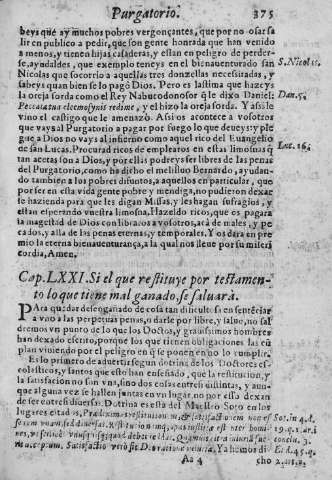 Purgatorio. 375
beys que ay muchos pobres vergonçantes, que por no osar sa
lir en publico a pedir, que son gente honrada que han venido
a menos, y tienen hijas casaderas, y estan en peligro de perder-
se, ayudaldes, que exemplo teneys en el bienauenturado san
Nicolas que socorrio a aquellas tres donzellas necessitadas, y
S. Nicolas.
sabeys quan bien se lo pagò Dios. Pero es lastima que hazeys
la oreja sorda como el Rey Nabucodonosor q̃ le dixo Daniel:
Dan. 5.
Peccata tua eleemosynis redime, y el hizo la oreja sorda. Y assi le
vino el castigo que le amenazò. Assi os acontece a vosotros
que vays al Purgatorio a pagar por fuego lo que deueys: y ple
gue a Dios no vays al infierno como aquel rico del Euangelio
Luc. 16.
de san Lucas. Procurad ricos de emplearos en estas limosnas q̃
tan acetas son a Dios, y por ellas podreys ser libres de las penas
del Purgatorio, como ha dicho el melifluo Bernardo, ayudan-
do tambien a los pobres difuntos, a aquellos en particular, que
por ser en esta vida gente pobre y mendiga, no pudieron dexar
se hazienda para que les digan Missas, y les hagan sufragios, y
estan esperando vuestra limosna. Hazeldo ricos, que os pagarà
la magestad de Dios con libraros a vosotros, acà de males, y pe
cados, y alla de las penas eternas, y temporales. Y os darà en pre
mio la eterna bienauenturança, a la qual nos lleue por su miseri
cordia, Amen.
Cap. LXXI. Si el que restituye por testamen-
to lo que tiene mal ganado, se saluarà.
PAra quedar desengañados de cosa tan dificultosa en sentẽciar
a vno a las perpetuas penas, o darle por libre, y saluo, no sal
dremos vn punto de lo que los Doctos, y grauissimos hombres
han dexado escrito, porque los que tienen obligaciones las cũ
plan viuiendo por el peligro en q̃ se ponen en no lo cumplir.
Es lo primero de aduertir segun dotrina de los Doctores es-
colasticos, y santos que esto han enseñado, que la restitucion, y
la satisfacion no son vna, sino dos cosas entre si distintas, y aun-
que alguna vez se hallen juntas en vn lugar, no por esso dexan
de ser entre si diuersas. Dotrina es esta del Maestro Soto en los
lugares citados,
Sot. in 4. d.
19. q. 1. ar. 1
conclu. 3.
Ya hemos di
Aa 4 cho